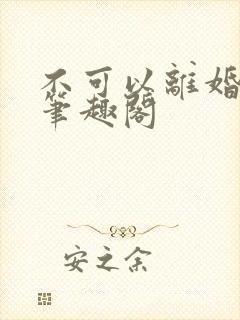 不可以離婚
筆趣閣
安之余